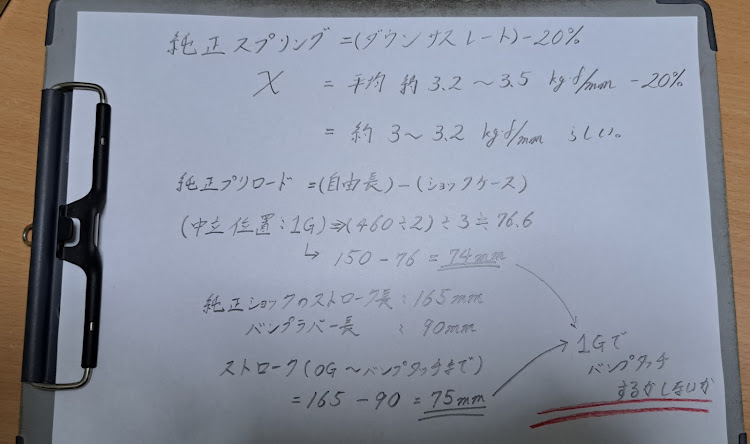 純正スプリング=(ダウンサスレート)-20%
X = 平均 約 3.2~3.5 kg・f/mm -20%
= 約 3~3.2 kg・f/mm らしい。
純正プリロード =(自由長)-(ショックケース)
(中立位置:1G)⇒(460÷2)÷3≒76.6
↳ 150-76=74mm
純正ショックのストローク長:165mm
バンプラバー長 :90mm
ストローク(0G~バンプタッチまで)
=165-90=75mm
1Gで
バンプタッチ
するかしないか